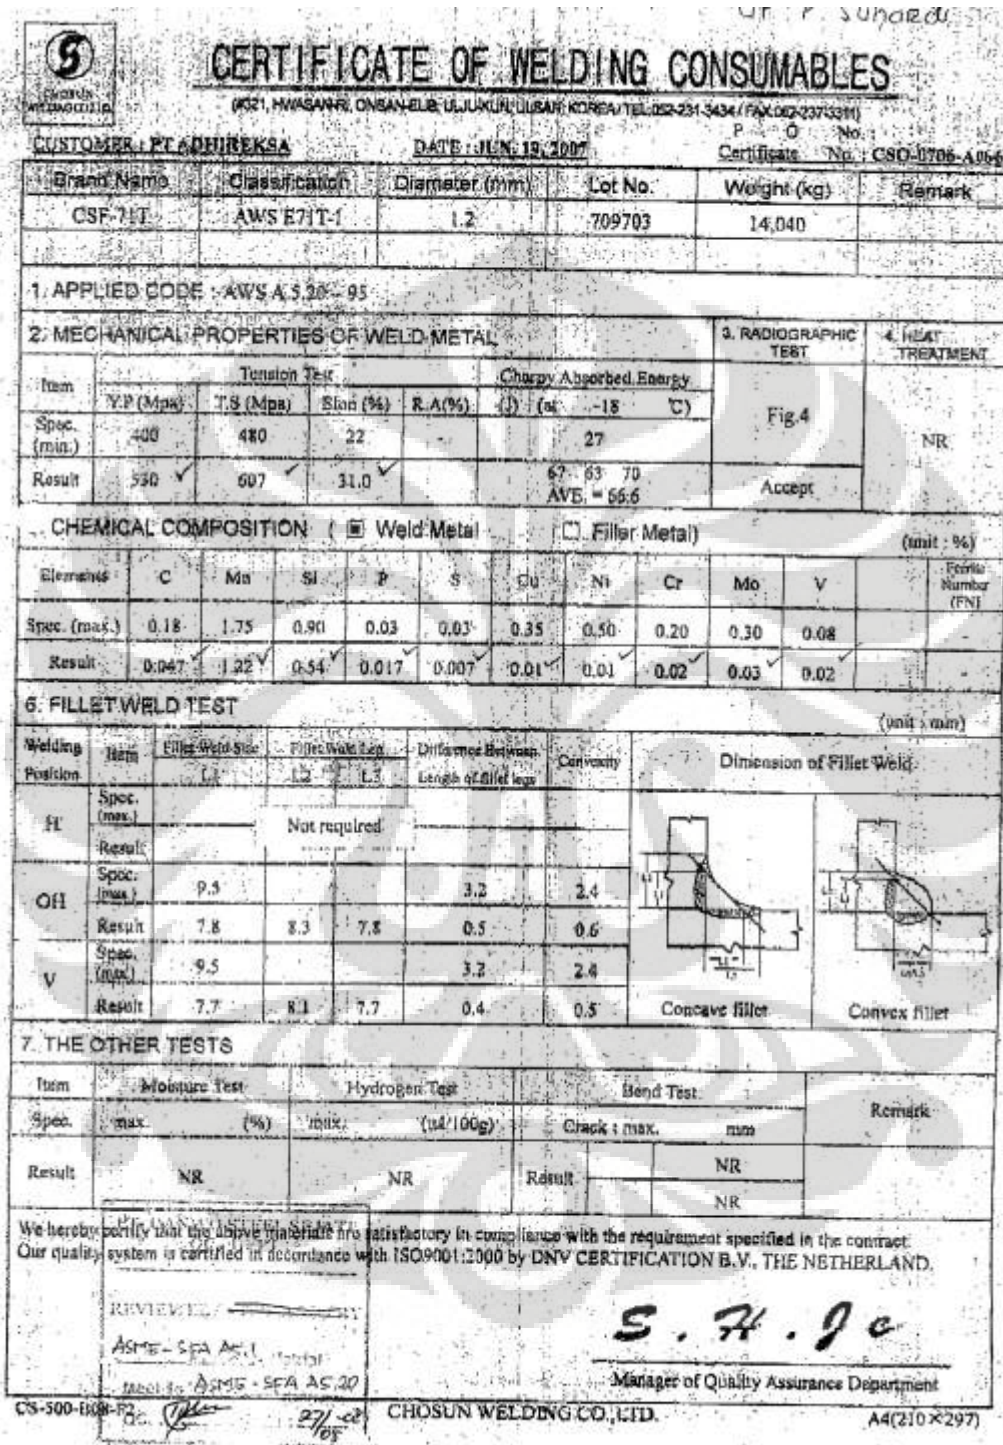 UT : P SUHARDI
S
CHOSUN
WELDING CO.,LTD.
CERTIFICATE OF WELDING CONSUMABLES
(#321, HWASAN-RI, ONSAN-EUB, ULJU-KUN, ULSAN, KOREA / TEL:052-231-3434 / FAX:052-237-3311)
P O No. :
CUSTOMER : PT ADHIREKSA DATE : JUN. 19, 2007 Certificate No. : CSO-0706-A066
Brand Name Classification Diameter (mm) Lot No. Weight (kg) Remark
CSF-71T AWS E71T-1 1.2 709703 14,040
1. APPLIED CODE : AWS A 5.20 - 95
2. MECHANICAL PROPERTIES OF WELD METAL 3. RADIOGRAPHIC TEST 4. HEAT TREATMENT
Item Tension Test Charpy Absorbed Energy
Y.P (Mpa) T.S (Mpa) Elon (%) R.A(%) (J) (at -18 ℃)
Spec. (min.) 400 480 22 - 27 Fig.4 NR
Result 530 607 31.0 67 63 70 Accept
AVE. = 66.6
CHEMICAL COMPOSITION ( ▣ Weld Metal □ Filler Metal) (unit : %)
Elements C Mn Si P S Cu Ni Cr Mo V Ferrite Number (FN)
Spec. (max.) 0.18 1.75 0.90 0.03 0.03 0.35 0.50 0.20 0.30 0.08 -
Result 0.047 1.22 0.54 0.017 0.007 0.01 0.01 0.02 0.03 0.02 -
6. FILLET WELD TEST (unit : mm)
Welding Position Item Fillet Weld Size Fillet Weld Leg Difference Between Length of fillet legs Convexity Dimension of Fillet Weld
L1 L2 L3
H Spec. (max.)
Not required
Result
OH Spec. (max.) 9.5 3.2 2.4
Result 7.8 8.3 7.8 0.5 0.6
V Spec. (max.) 9.5 3.2 2.4
Result 7.7 8.1 7.7 0.4 0.5 Concave fillet Convex fillet
7. THE OTHER TESTS
Item Moisture Test Hydrogen Test Bend Test Remark
Spec. max. (%) max. (㎖/100g) Crack : max. mm
Result NR NR Result NR
NR
We hereby certify that the above materials are satisfactory in compliance with the requirement specified in the contract.
Our quality system is certified in accordance with ISO9001:2000 by DNV CERTIFICATION B.V., THE NETHERLAND.
REVIEWED BY
ASME - SFA A5.1
ASME - SFA A5.20
S . H . Je
Manager of Quality Assurance Department
CS-500-B08-F2 CHOSUN WELDING CO.,LTD. A4(210×297)